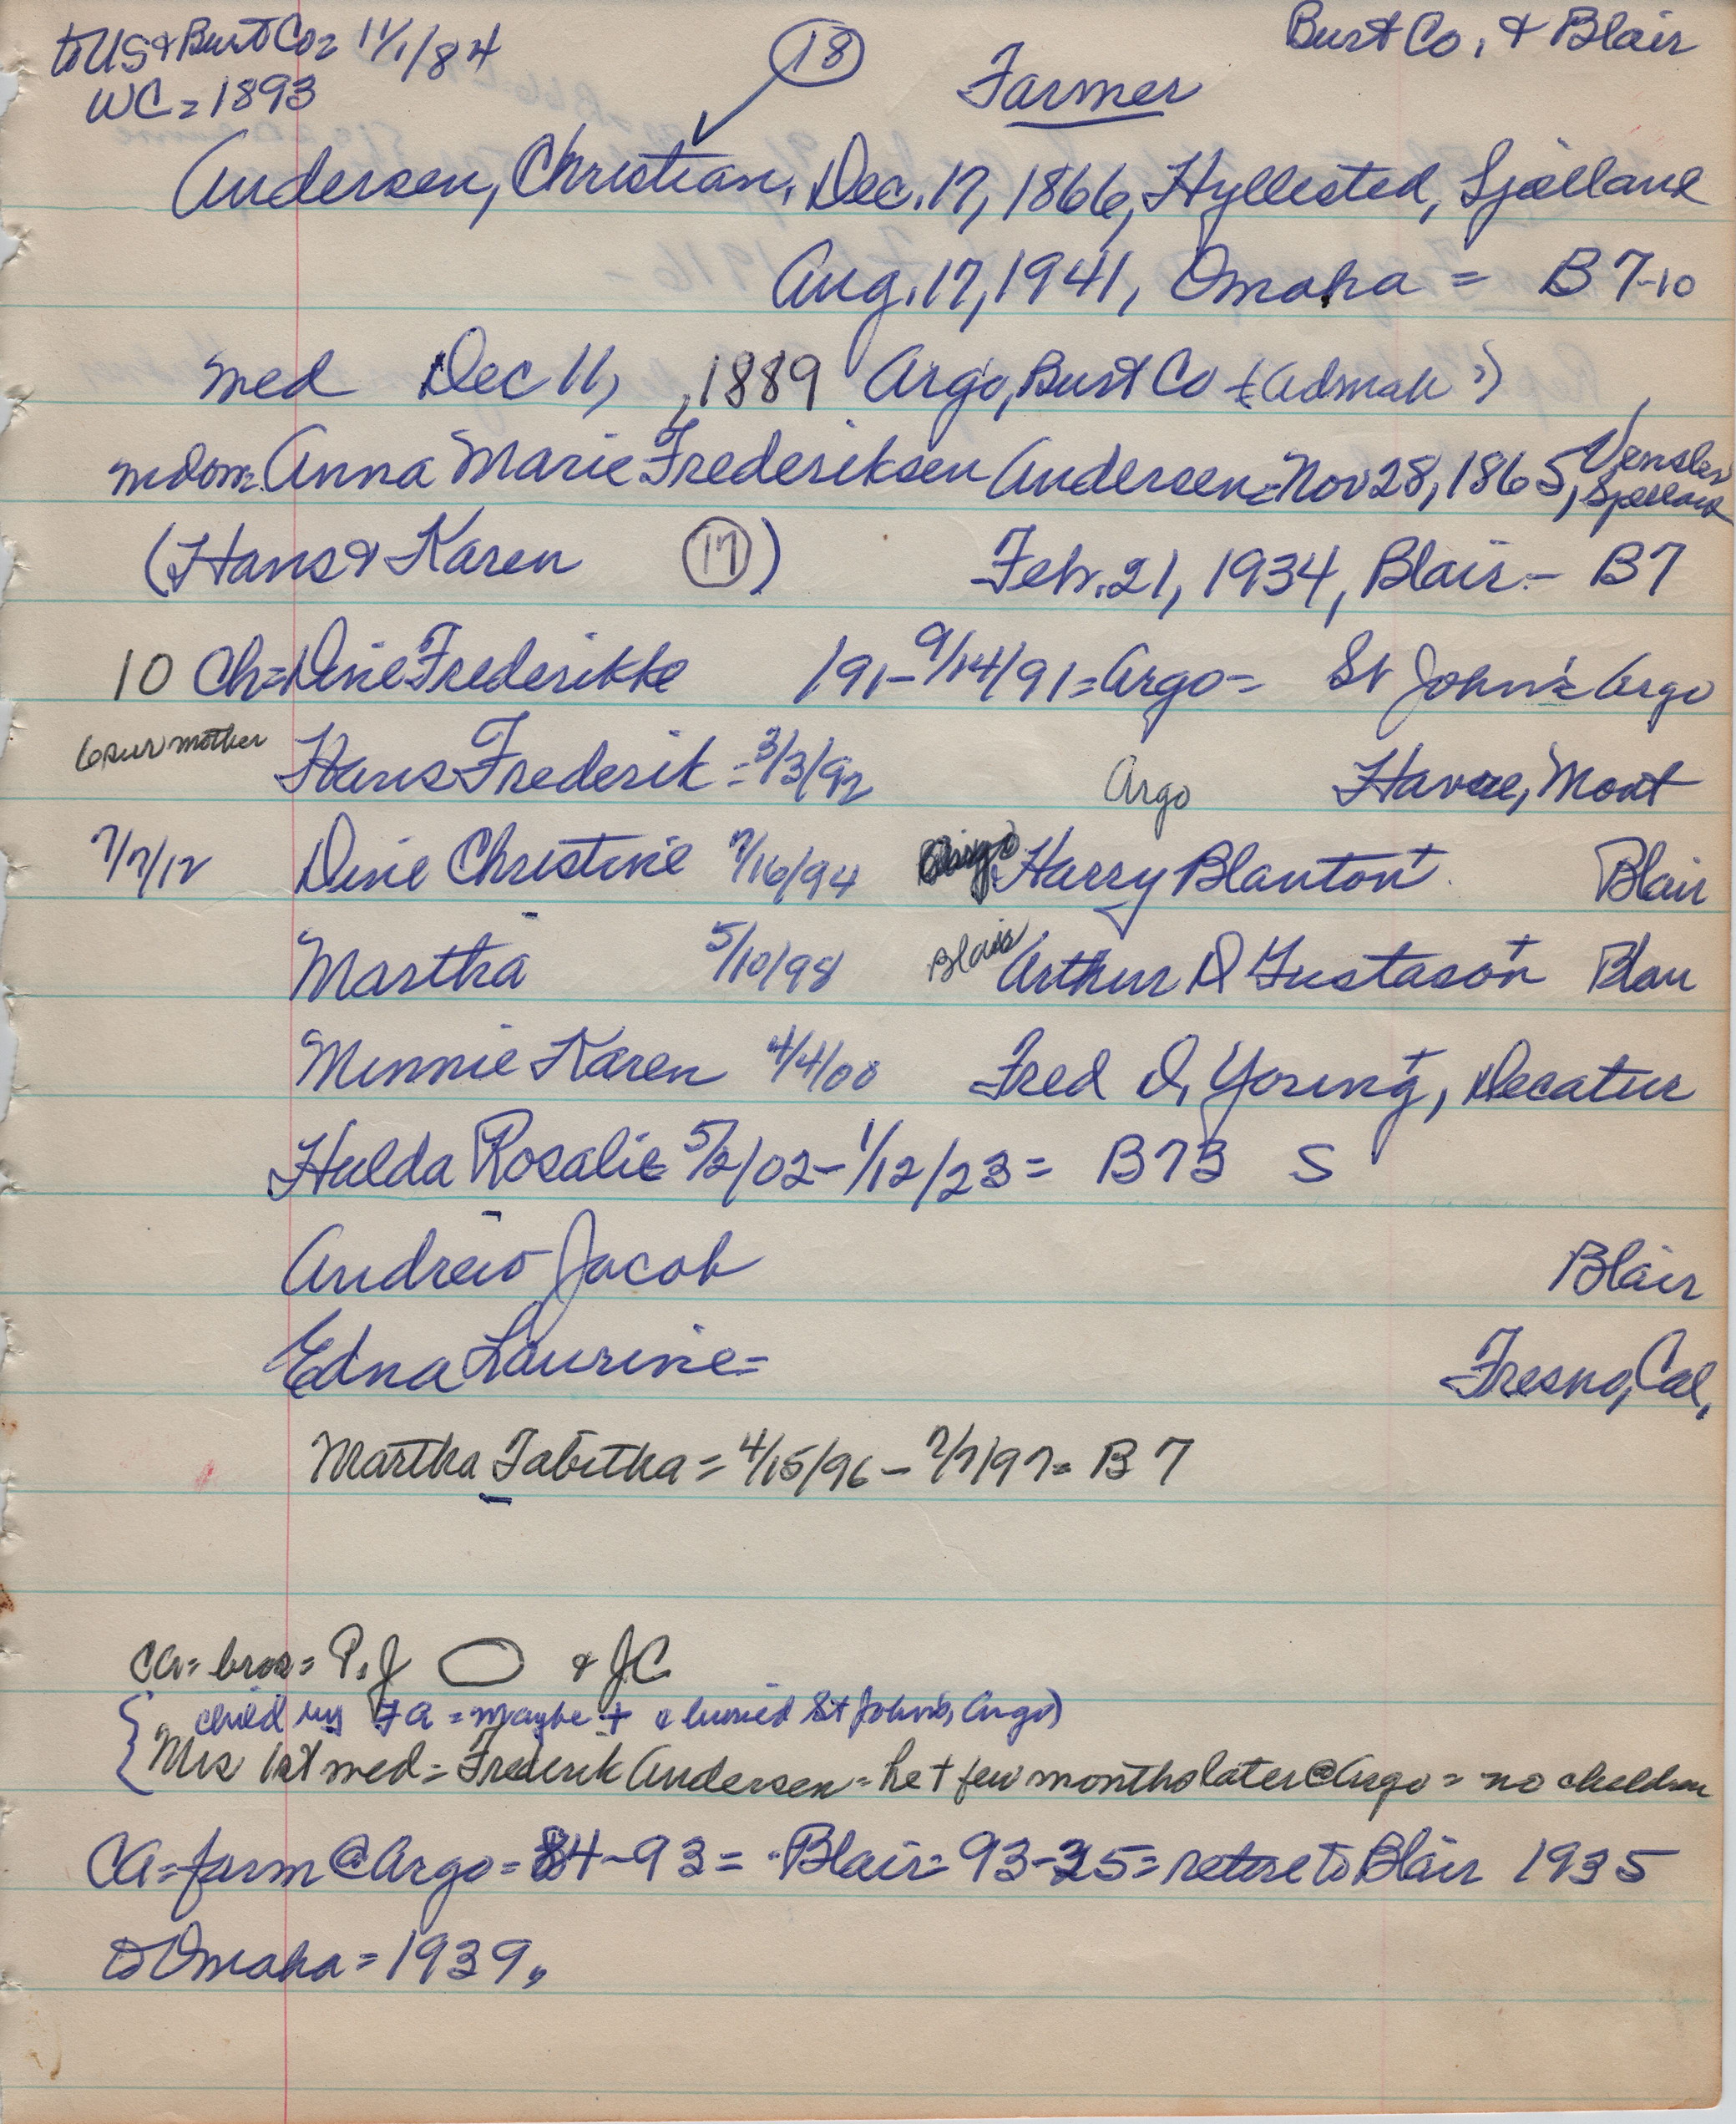 to US & Burt Co = 11/1/84
WC = 1893
18
Farmer
Burt Co, & Blair
Andersen, Christian, Dec. 17, 1866, Hyllested, Sjælland
Aug. 17, 1941, Omaha = B 7-10
med Dec 11, , 1889 Argo, Burt Co (Admah?)
Anna Marie Frederiksen Andersen = Nov 28, 1865, Sjælland
(Hans & Karen 17) Feb. 21, 1934, Blair - B7
10 Ch = Dine Frederikke /91 - 9/14/91 = Argo = St John's Argo
6 sur mother Hans Frederik = 3/3/92 Argo Havre, Mont
7/7/12 Dine Christine 7/16/94 Harry Blanton + Blair
Martha 5/10/98 Blair Arthur D Gustason + Blair
Minnie Karen 4/4/00 Fred D, Young +, Decatur
Hulda Rosalie 5/2/02 - 1/12/23 = B73 S
Andrew Jacob Blair
Edna Laurine = Fresno, Cal,
Martha Tabitha = 4/15/96 - 7/7/97 = B 7
CA = bros = P. J & JC
child by FA = maybe + & buried St John's, Argo)
Mrs 1st med = Frederik Andersen = he + few months later @ Argo = no children
CA = farm @ Argo = 84-93 = Blair = 93-35 = retire to Blair 1935
to Omaha = 1939,